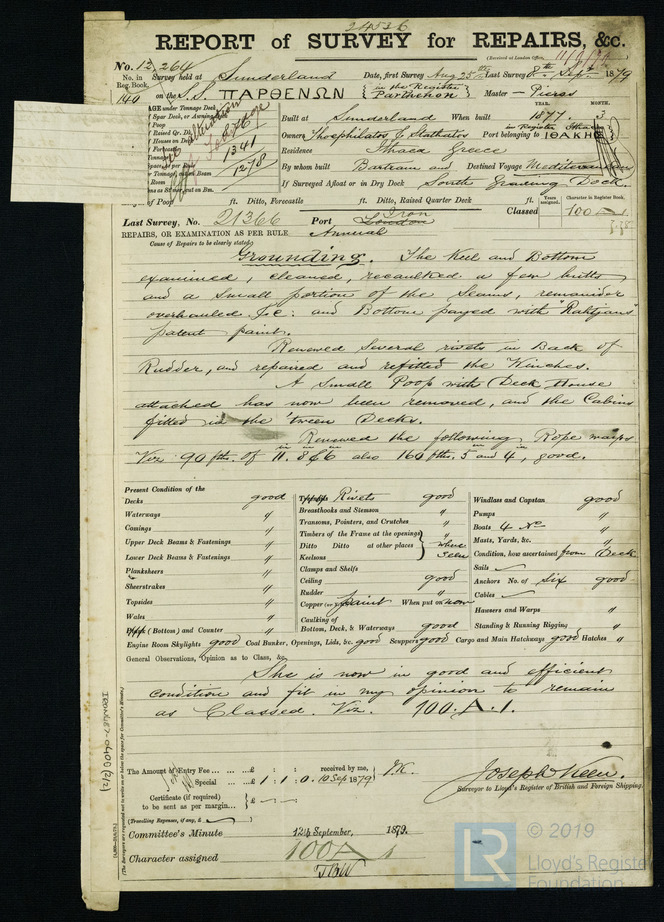 24536
REPORT of SURVEY for REPAIRS, &c.
(Received at London Office,
No. 12,264
No. in Survey held at Sunderland Date, first Survey Aug 25th Last Survey 8th Sept. 1879
Reg. Book.
140 on the S.S. ΠΑΡΘΕΝΩΝ { in the Register Parthenon } Master Pieros
TONNAGE under Tonnage Deck
1341
1278
YEAR. MONTH.
Built at Sunderland When built 1877. 3
Owners Theophilatos & Stathatos Port belonging to in Register Ithaca ΙΘΑΚΗΣ
Residence Ithaca Greece
By whom built Bartram and Destined Voyage Mediterranean
If Surveyed Afloat or in Dry Dock South Graving Dock.
Length of Poop ft. Ditto, Forecastle ft. Ditto, Raised Quarter Deck ft.
Years assigned. Character in Register Book.
Classed 100 A 1
Last Survey, No. 21366 Port London
Iron
REPAIRS, OR EXAMINATION AS PER RULE Annual
Cause of Repairs to be clearly stated
Grounding. The Keel and Bottom
examined, cleaned, recaulked a few butts
and a small portion of the Seams, remainder
overhauled &c: and Bottom payed with "Rahtjens"
patent paint.
Renewed several rivets in Back of
Rudder, and repaired and refitted the Winches.
A Small Poop with Deck House
attached has now been removed, and the Cabins
fitted in the 'tween Decks.
Renewed the following Rope warps
Viz 90 fths. of 11. 8 & 6 also 160 fths. 5 and 4, good.
Present Condition of the
Decks good
Waterways "
Comings "
Upper Deck Beams & Fastenings "
Lower Deck Beams & Fastenings "
Planksheers "
Sheerstrakes "
Topsides "
Wales "
(Bottom) and Counter "
Rivets good
Breasthooks and Stemson "
Transoms, Pointers, and Crutches "
Timbers of the Frame at the openings
Ditto Ditto at other places } where seen
Keelsons
Clamps and Shelfs
Ceiling good
Rudder "
Copper (or) paint When put on now
Caulking of
Bottom, Deck, & Waterways good
Windlass and Capstan good
Pumps "
Boats 4 No "
Masts, Yards, &c. "
Condition, how ascertained from Deck
Sails ✓
Anchors No. of Six good
Cables ✓
Hawsers and Warps "
Standing & Running Rigging "
Engine Room Skylights good Coal Bunker, Openings, Lids, &c. good Scuppers good Cargo and Main Hatchways good Hatches "
General Observations, Opinion as to Class, &c.
She is now in good and efficient
condition and fit in my opinion to remain
as Classed. Viz. 100. A. 1.
The Amount of Entry Fee ... ... ... £ : : received by me,
Special ... ... £ 1 : 1 : 0. 10 Sep 1879 J.K.
Certificate (if required)
to be sent as per margin...
(Travelling Expenses, if any, £
Joseph Keen.
Surveyor to Lloyd's Register of British and Foreign Shipping.
Committee's Minute 12th September, 1879.
Character assigned 100 A 1
(The Surveyors are requested not to write on or below the space for Committee's Minute.)
© 2019
LR
Lloyd's Register
Foundation